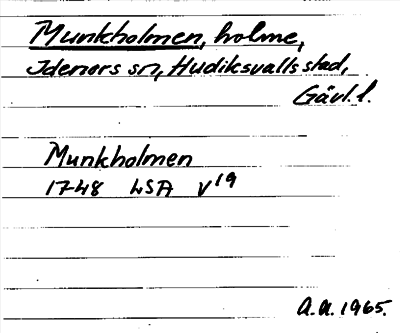 Munkholmen, holme,
Idenors sn, Hudiksvalls stad,
Gävl. l.
Munkholmen
1748 LSA V19
A.A. 1965.